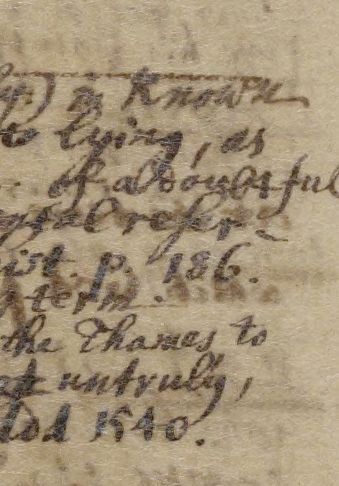 a Known
to lying, as
of a doubtful
refer-
ist. p. 186.
term.
the Thames to
untruly,
1540.